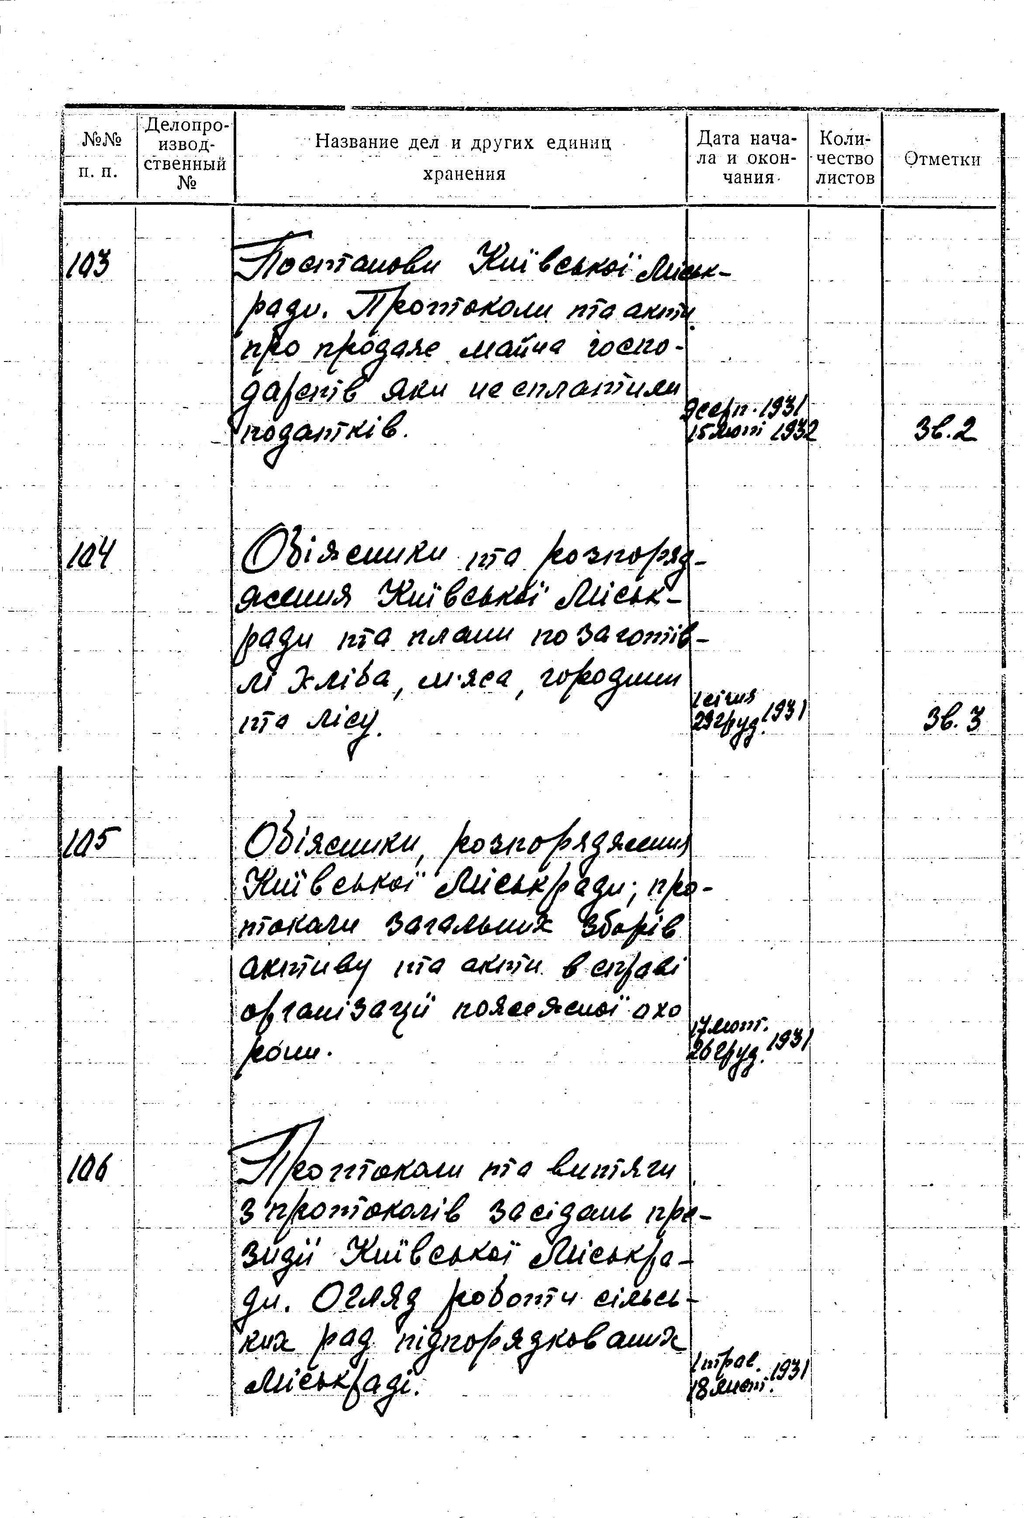 №№ п. п.
Делопро-
извод-
ственный
№
Название дел и других единиц
хранения
Дата нача-
ла и окон-
чания.
Коли-
чество
листов
Отметки
103
Постанови Київської Міськ-
ради. Протоколи та акти
про продаж майна госпо-
дарств яки не сплатили
податків.
9 серп. 1931
15 лют 1932
Зв. 2
104
Обіжники та розпоряд-
ження Київської Міськ-
ради та плани по заготів-
лі хліба, м'яса, городини
та лісу.
1 січня
29 груд. 1931
Зв. 3
105
Обіжники, розпорядження
Київської Міськради; про-
токоли загальних зборів
активу та акти в справі
організації пожежної охо
рони.
17 лют.
26 груд. 1931
106
Протоколи та витяги
з протоколів засідань пре-
зидії Київської Міськра-
ди. Огляд роботи сільсь-
ких рад підпорядкованих
Міськраді.
1 трав. 1931
18 лист.